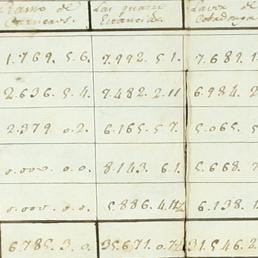 Ramo de | Las quatro | Lavor de
Carneros. | Encomdas.
1.769. 5. 6. | 7.992. 5. 1. | 7.689. 1
2.636. 5. 4. | 7.482. 2. 11 | 6.984. 2
2.379. 0. 2. | 6.165. 5. 7. | 5.065. 5
0.000. 0. 0. | 8.143. 6. 1. | 5.668. 7
0.000. 0. 0. | 5.886. 4. 11½ | 6.138. 1
6.785. 3. 0. | 35.671. 0. 7½ | 31.546. 2